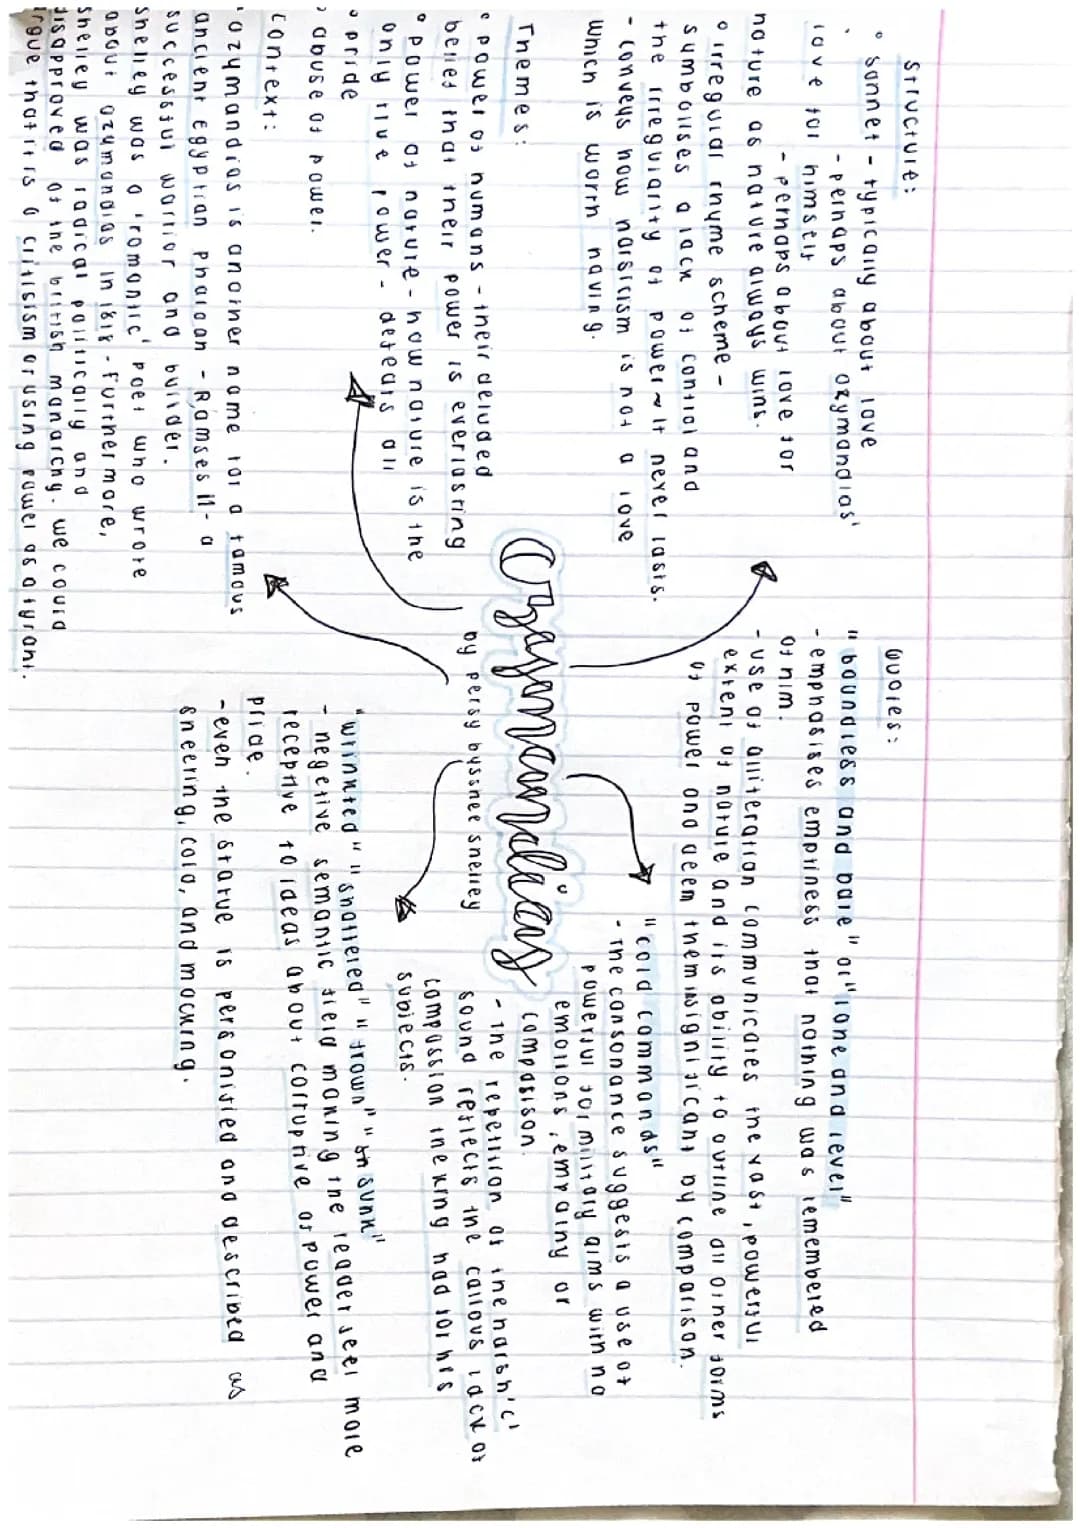 Structure:
° sonnet - typically about love
- perhaps about ozymandias'
love for himself
- perhaps about love for
nature as nature always wins.
° irregular rhyme scheme -
symbolises a lack of control and
the irregularity of power ~ it never lasts.
- conveys how narsicism is not a love
which is worth having.
Themes:
° power of humans - their deluded
belief that their power is everlasting
° power of nature - how nature is the
only true power - defeats all
° pride
° abuse of power.
Context:
° ozymandias is another name for a famous
ancient Egyptian pharoah - Ramses II - a
successful warrior and builder.
Shelley was a 'romantic' poet who wrote
about ozymandias in 1818 - furthermore,
Shelley was radical politically and
disapproved of the british monarchy. we could
argue that it is a critisism of using power as a tyrant.
Ozymandias
by persy bysshee shelley
Quotes:
"boundless and bare" or "lone and level"
- emphasises emptiness that nothing was remembered
of him.
- use of alliteration communicates the vast, powerful
extent of nature and its ability to outline all other forms
of power and deem them insignificant by comparison.
"cold commands"
- the consonance suggests a use of
powerful for military aims with no
emotions, empathy or
compasison.
- the repetition of the harsh 'c'
sound reflects the callous lack of
compassion the king had for his
subjects.
"wrinkled" "shattered" "frown" "sunk"
- negetive semantic field making the reader feel more
receptive to ideas about corruptive of power and
pride.
- even the statue is personified and described as
sneering, cold, and mocking.